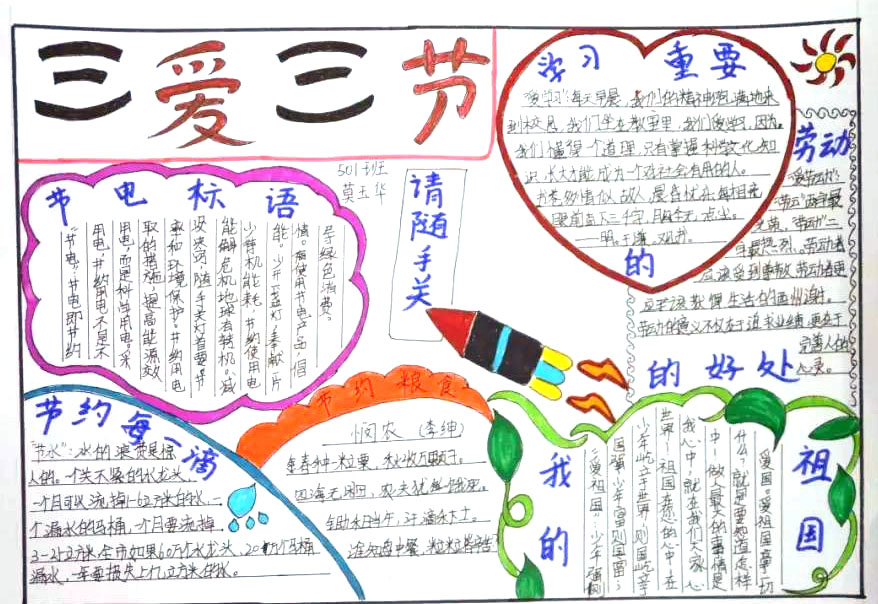 三爱三节
501班
莫玉华
请随手关
节电标语
"节电":节电即节约
用电,节约用电不是不
用电,而是科学用电。采
取的措施,提高能源效
率和环境保护。节约用电
没决窍,随手关灯首要。节
能解危机地球有转机。减
少待机能耗,节约使用电
能。少开一盏灯,奉献一片
情。 使用节电产品,倡
导绿色消费。
学习 重要
的
"爱学习":每天早晨,我们的精神 满地来
到校园,我们坐在教室里,我们爱学习,因为。
我们懂得一个道理,只有掌握科学文化知
识,长大才能成为一个对社会有用的人。
书卷多情似故人,晨昏忧乐每相亲
眼前直下三千字,胸次全无一点尘。
——明·于谦《观书》
劳动
的好处
"爱劳动":
"劳动"两字最
光荣,"劳动"二
字最热烈。劳动者
应该受到尊敬,劳动者更
应 该 生活在 。
劳动的意义不仅在于追求业绩,更在于
完善人的
心灵。
节约每一滴
"节水":水的浪费是惊
人的。一个关不紧的水龙头,
一个月可以流掉1-6立方米的水,一
个漏水的马桶,一个月要流掉
3-25立方米,全市如果60万个水龙头,20万个马桶
漏水,一年要损失上亿立方米的水。
节约粮食
悯农 (李绅)
春种一粒粟,秋收万颗子。
四海无闲田,农夫犹饿死。
锄禾日当午,汗滴禾下土。
谁知盘中餐,粒粒皆辛苦
我的
祖国
"爱祖国":少年强则
国强,少年富则国富;
少年屹立于世界,则国屹立于
世界!祖国在您的心中!在
我心中,就在我们大家心
中!做人最大的事情是
什么?就是要知道怎样
爱国。爱祖国高于一切